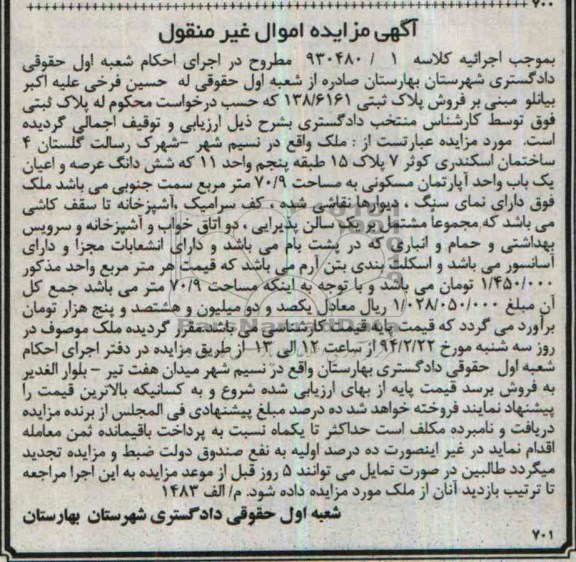 ۷۰۰
آگهی مزایده اموال غیر منقول
بموجب اجرائیه کلاسه ۱ / ۹۳۰۴۸۰ مطروح در اجرای احکام شعبه اول حقوقی
دادگستری شهرستان بهارستان صادره از شعبه اول حقوقی له حسین فرخی علیه اکبر
بیانلو مبنی بر فروش پلاک ثبتی ۱۳۸/۶۱۶۱ که حسب درخواست محکوم له پلاک ثبتی
فوق توسط کارشناس منتخب دادگستری بشرح ذیل ارزیابی و توقیف اجمالی گردیده
است. مورد مزایده عبارتست از : ملک واقع در نسیم شهر -شهرک رسالت گلستان ۴
ساختمان اسکندری کوثر ۷ پلاک ۱۵ طبقه پنجم واحد ۱۱ که شش دانگ عرصه و اعیان
یک باب واحد آپارتمان مسکونی به مساحت ۷۰/۹ متر مربع سمت جنوبی می باشد ملک
فوق دارای نمای سنگ ، دیوارها نقاشی شده ، کف سرامیک ،آشپزخانه تا سقف کاشی
می باشد که مجموعا مشتمل بر یک سالن پذیرایی ، دو اتاق خواب و آشپزخانه و سرویس
بهداشتی و حمام و انباری که در پشت بام می باشد و دارای انشعابات مجزا و دارای
آسانسور می باشد و اسکلت بندی بتن آرم می باشد که قیمت هر متر مربع واحد مذکور
۱/۴۵۰/۰۰۰ تومان می باشد و با توجه به اینکه مساحت ۷۰/۹ متر می باشد جمع کل
آن مبلغ ۱/۰۲۸/۰۵۰/۰۰۰ ریال معادل یکصد و دو میلیون و هشتصد و پنج هزار تومان
برآورد می گردد که قیمت پایه قیمت کارشناسی می باشد.مقرر گردیده ملک موصوف در
روز سه شنبه مورخ ۹۴/۲/۲۲ از ساعت ۱۲ الی ۱۳ از طریق مزایده در دفتر اجرای احکام
شعبه اول حقوقی دادگستری بهارستان واقع در نسیم شهر میدان هفت تیر - بلوار الغدیر
به فروش برسد قیمت پایه از بهای ارزیابی شده شروع و به کسانیکه بالاترین قیمت را
پیشنهاد نمایند فروخته خواهد شد ده درصد مبلغ پیشنهادی فی المجلس از برنده مزایده
دریافت و نامبرده مکلف است حداکثر تا یکماه نسبت به پرداخت باقیمانده ثمن معامله
اقدام نماید در غیر اینصورت ده درصد اولیه به نفع صندوق دولت ضبط و مزایده تجدید
میگردد طالبین در صورت تمایل می توانند ۵ روز قبل از موعد مزایده به این اجرا مراجعه
تا ترتیب بازدید آنان از ملک مورد مزایده داده شود. م/ الف ۱۴۸۳
شعبه اول حقوقی دادگستری شهرستان بهارستان
۷۰۱